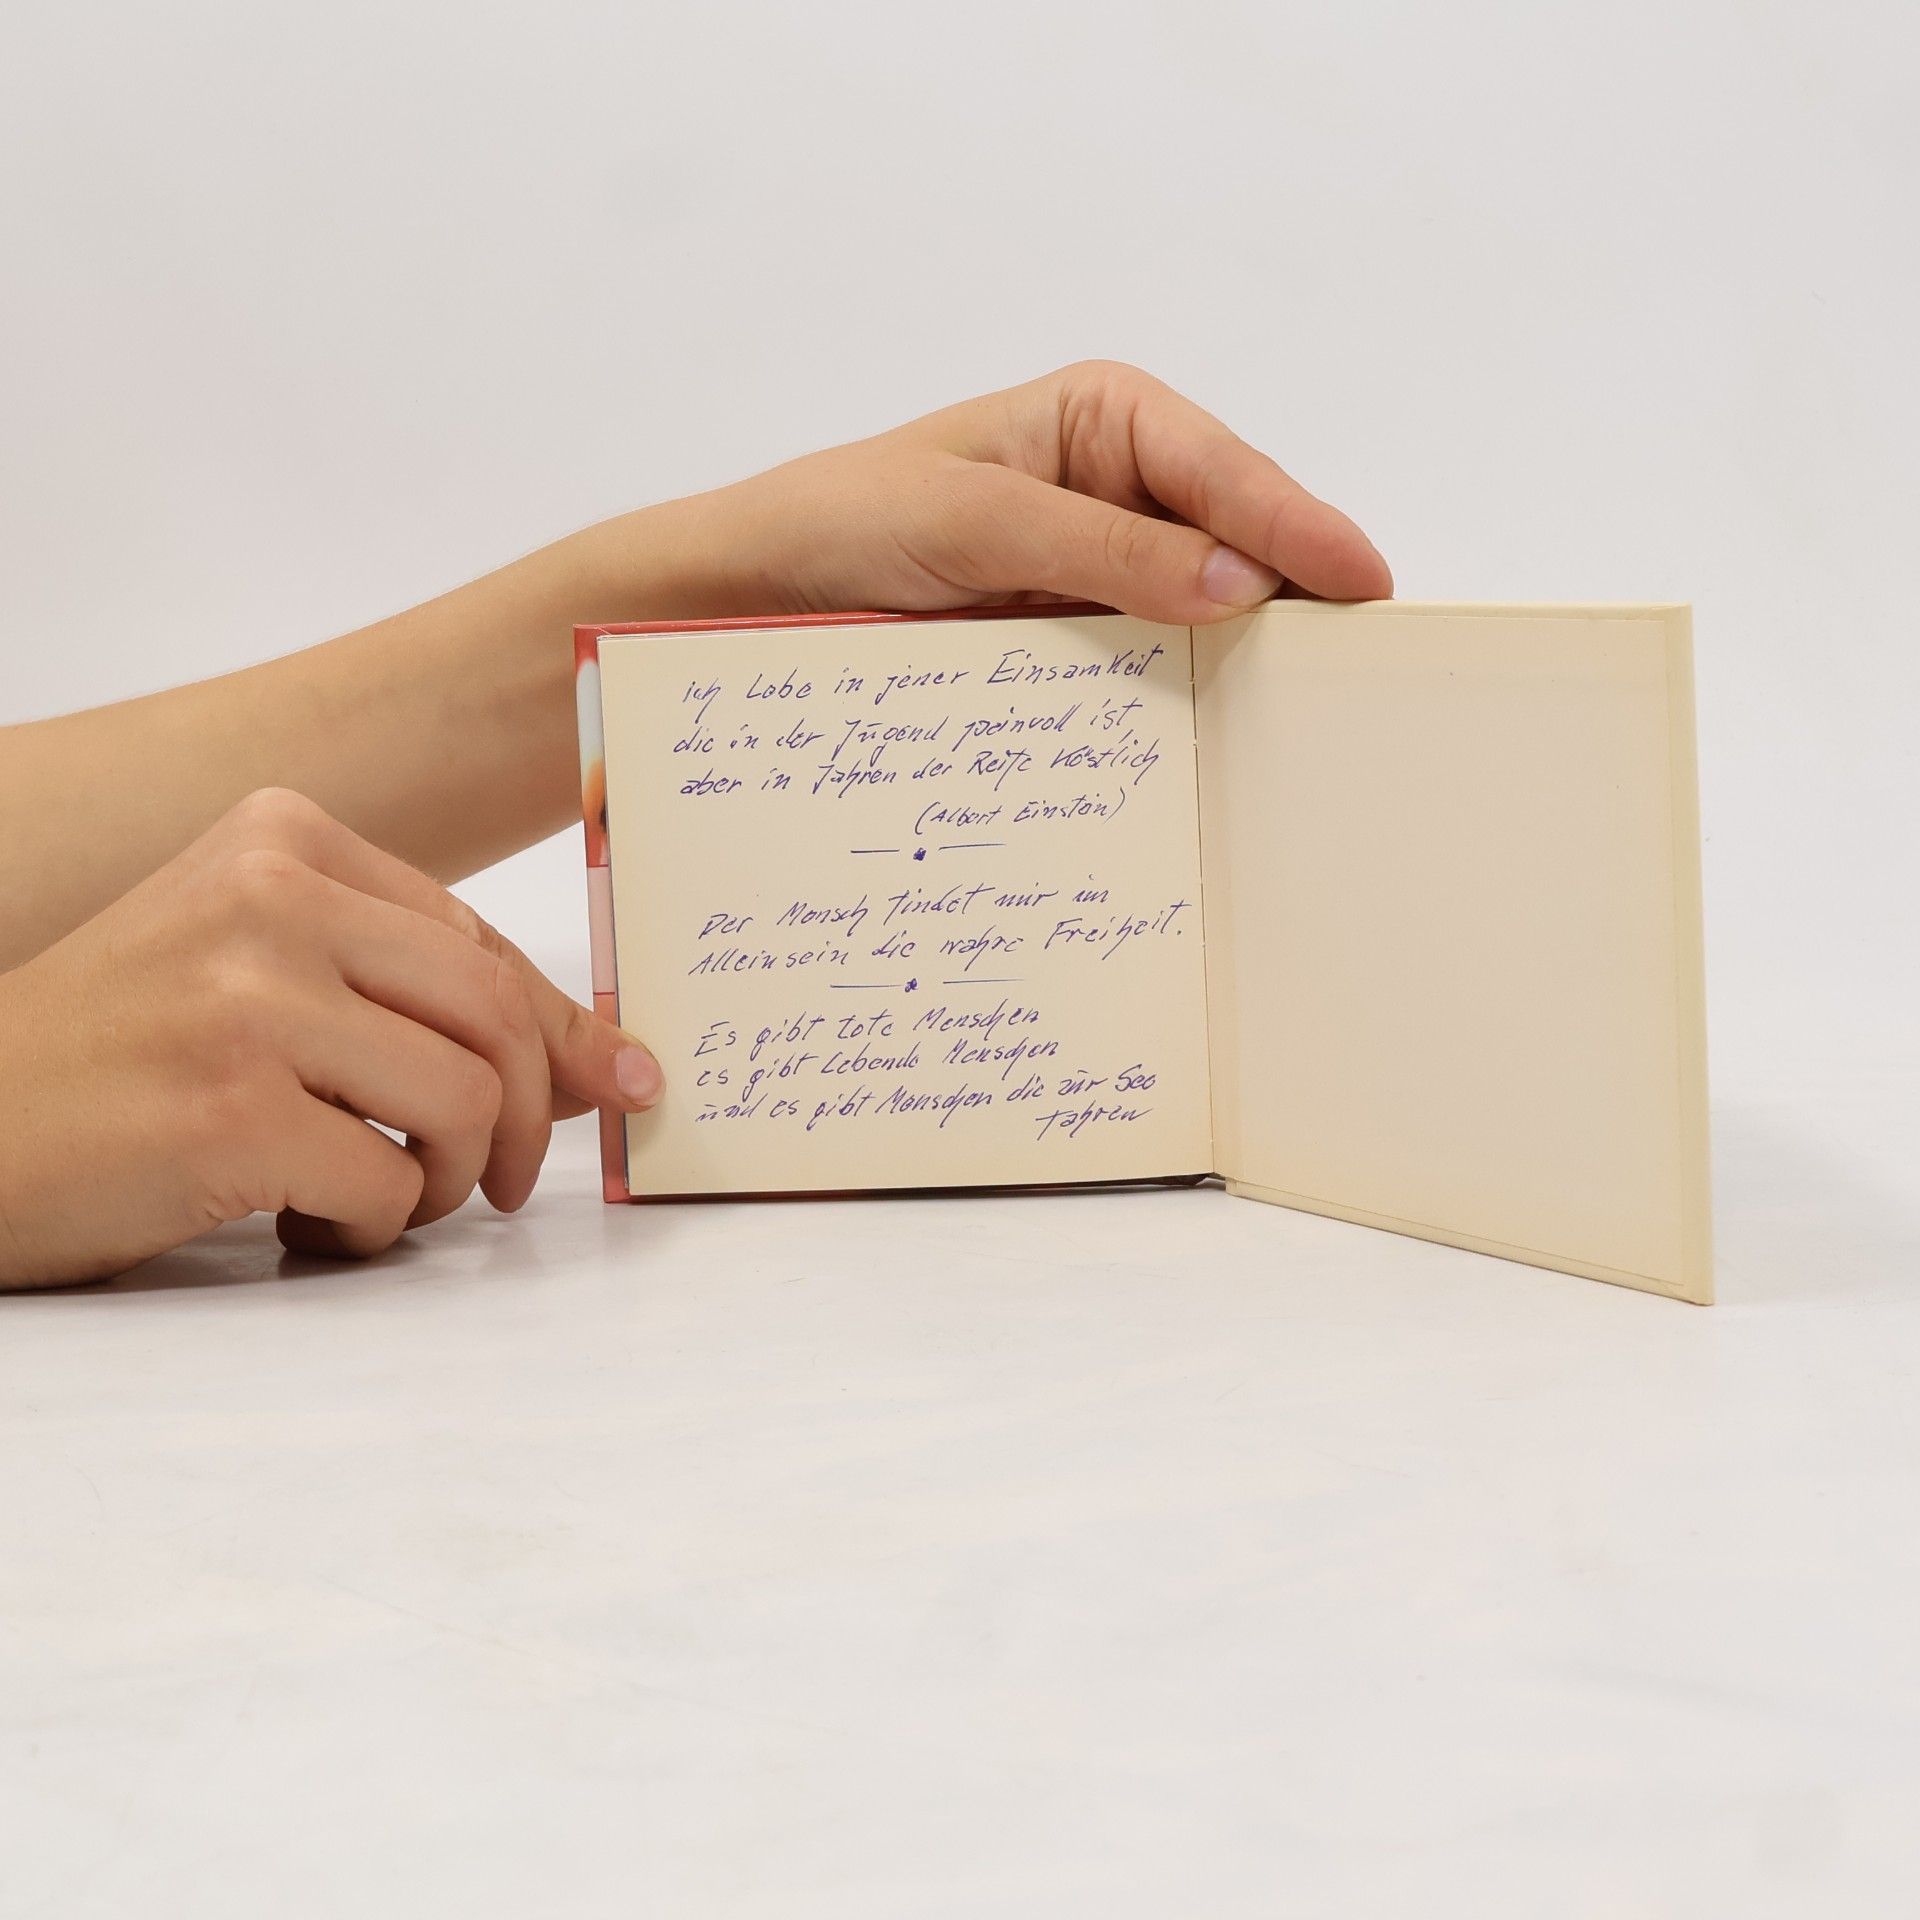 ich Lebe in jener Einsamkeit
die in der Jūgend peinvoll ist,
aber in Jahren der Reife Köstlich
(Albert Einstein)
Der Mensch findet nur im
Alleinsein die wahre Freiheit.
Es gibt tote Menschen
es gibt Lebende Menschen
ūnd es gibt Menschen die zūr See
fahren